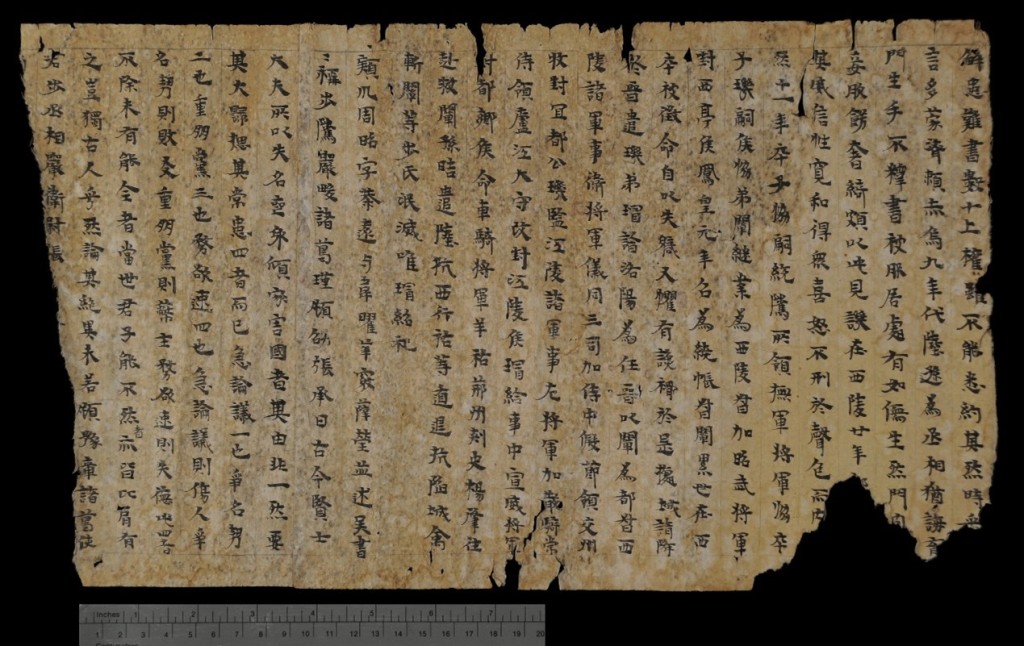 解患難書數十上權雖不能悉約其然時采
言多蒙濟賴赤烏九年代陸遜為丞相猶誨育
門生手不釋書被服居處有如儒生然門內
妾服飾奢綺頗以此見譏在西陵廿年
其威信性寬和得眾喜怒不刑於聲色而內
然十一年卒子協嗣統騭所領撫軍將軍協卒
子璣嗣侯協弟闡繼業為西陵督加昭武將軍
封西亭侯鳳皇元年召為繞帳督闡累世在西
卒被徵命自以失職又懼有讒禍於是據城請降
於晉遣璣弟璿詣洛陽為任晉以闡為都督西
陵諸軍事衛將軍儀同三司加侍中假節領交州
牧封宜都公璣監江陵諸軍事左將軍加散騎常
侍領廬江太守改封江陵侯璿給事中宣威將軍
封都鄉侯命車騎將軍羊祜荊州刺史楊肇往
赴救闡孫晧遣陸抗西行祜等遁退抗陷城禽
斬闡等步氏泯滅唯璿紹祀
潁川周昭字恭遠与韋曜華覈薛瑩並述吳書
〻稱步騭嚴畯諸葛瑾顧劭張承曰古今賢士
大夫所以失名喪身傾家害國者其由非一然要
其大歸揔其常患四者而已急論議一也爭名勢
二也重朋黨三也務欲速四也急論議則傷人爭
名勢則敗友重朋黨則蔽主務欲速則失德此四者
不除未有能全者當世君子能不然者亦皆比肩有
之豈獨古人乎然論其絕異未若顧豫章諸葛使
者步丞相嚴衛尉張